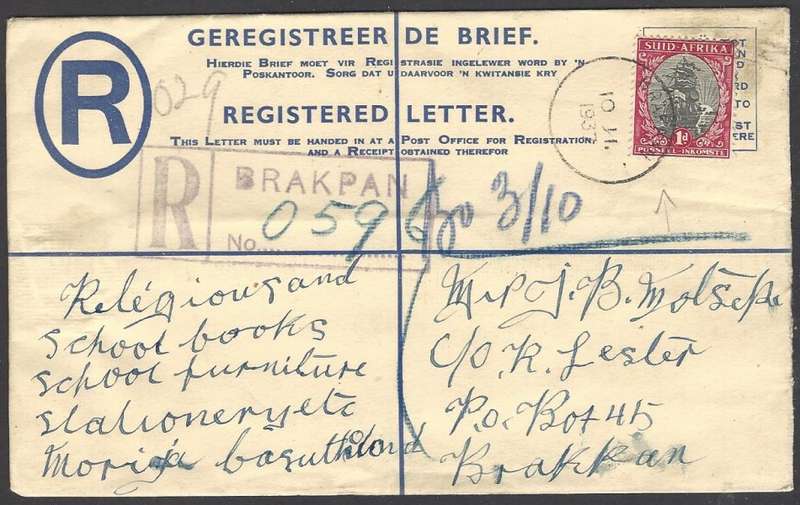 GEREGISTREER DE BRIEF.
HIERDIE BRIEF MOET VIR REGISTRASIE INGELEWER WORD BY 'N
POSKANTOOR. SORG DAT U DAARVOOR 'N KWITANSIE KRY
R
029
REGISTERED LETTER.
THIS LETTER MUST BE HANDED IN AT A POST OFFICE FOR REGISTRATION
AND A RECEIPT OBTAINED THEREFOR
SUID-AFRIKA
1D
POSSEËL-INKOMSTE
10 11
R
BRAKPAN
No. 059
3/10
Relégiousand
school books
school furniture
stationeryetc
Morija basutholand
J. B. Motsepe
C/O R. Lester
P.O. Box 45
Brakkan